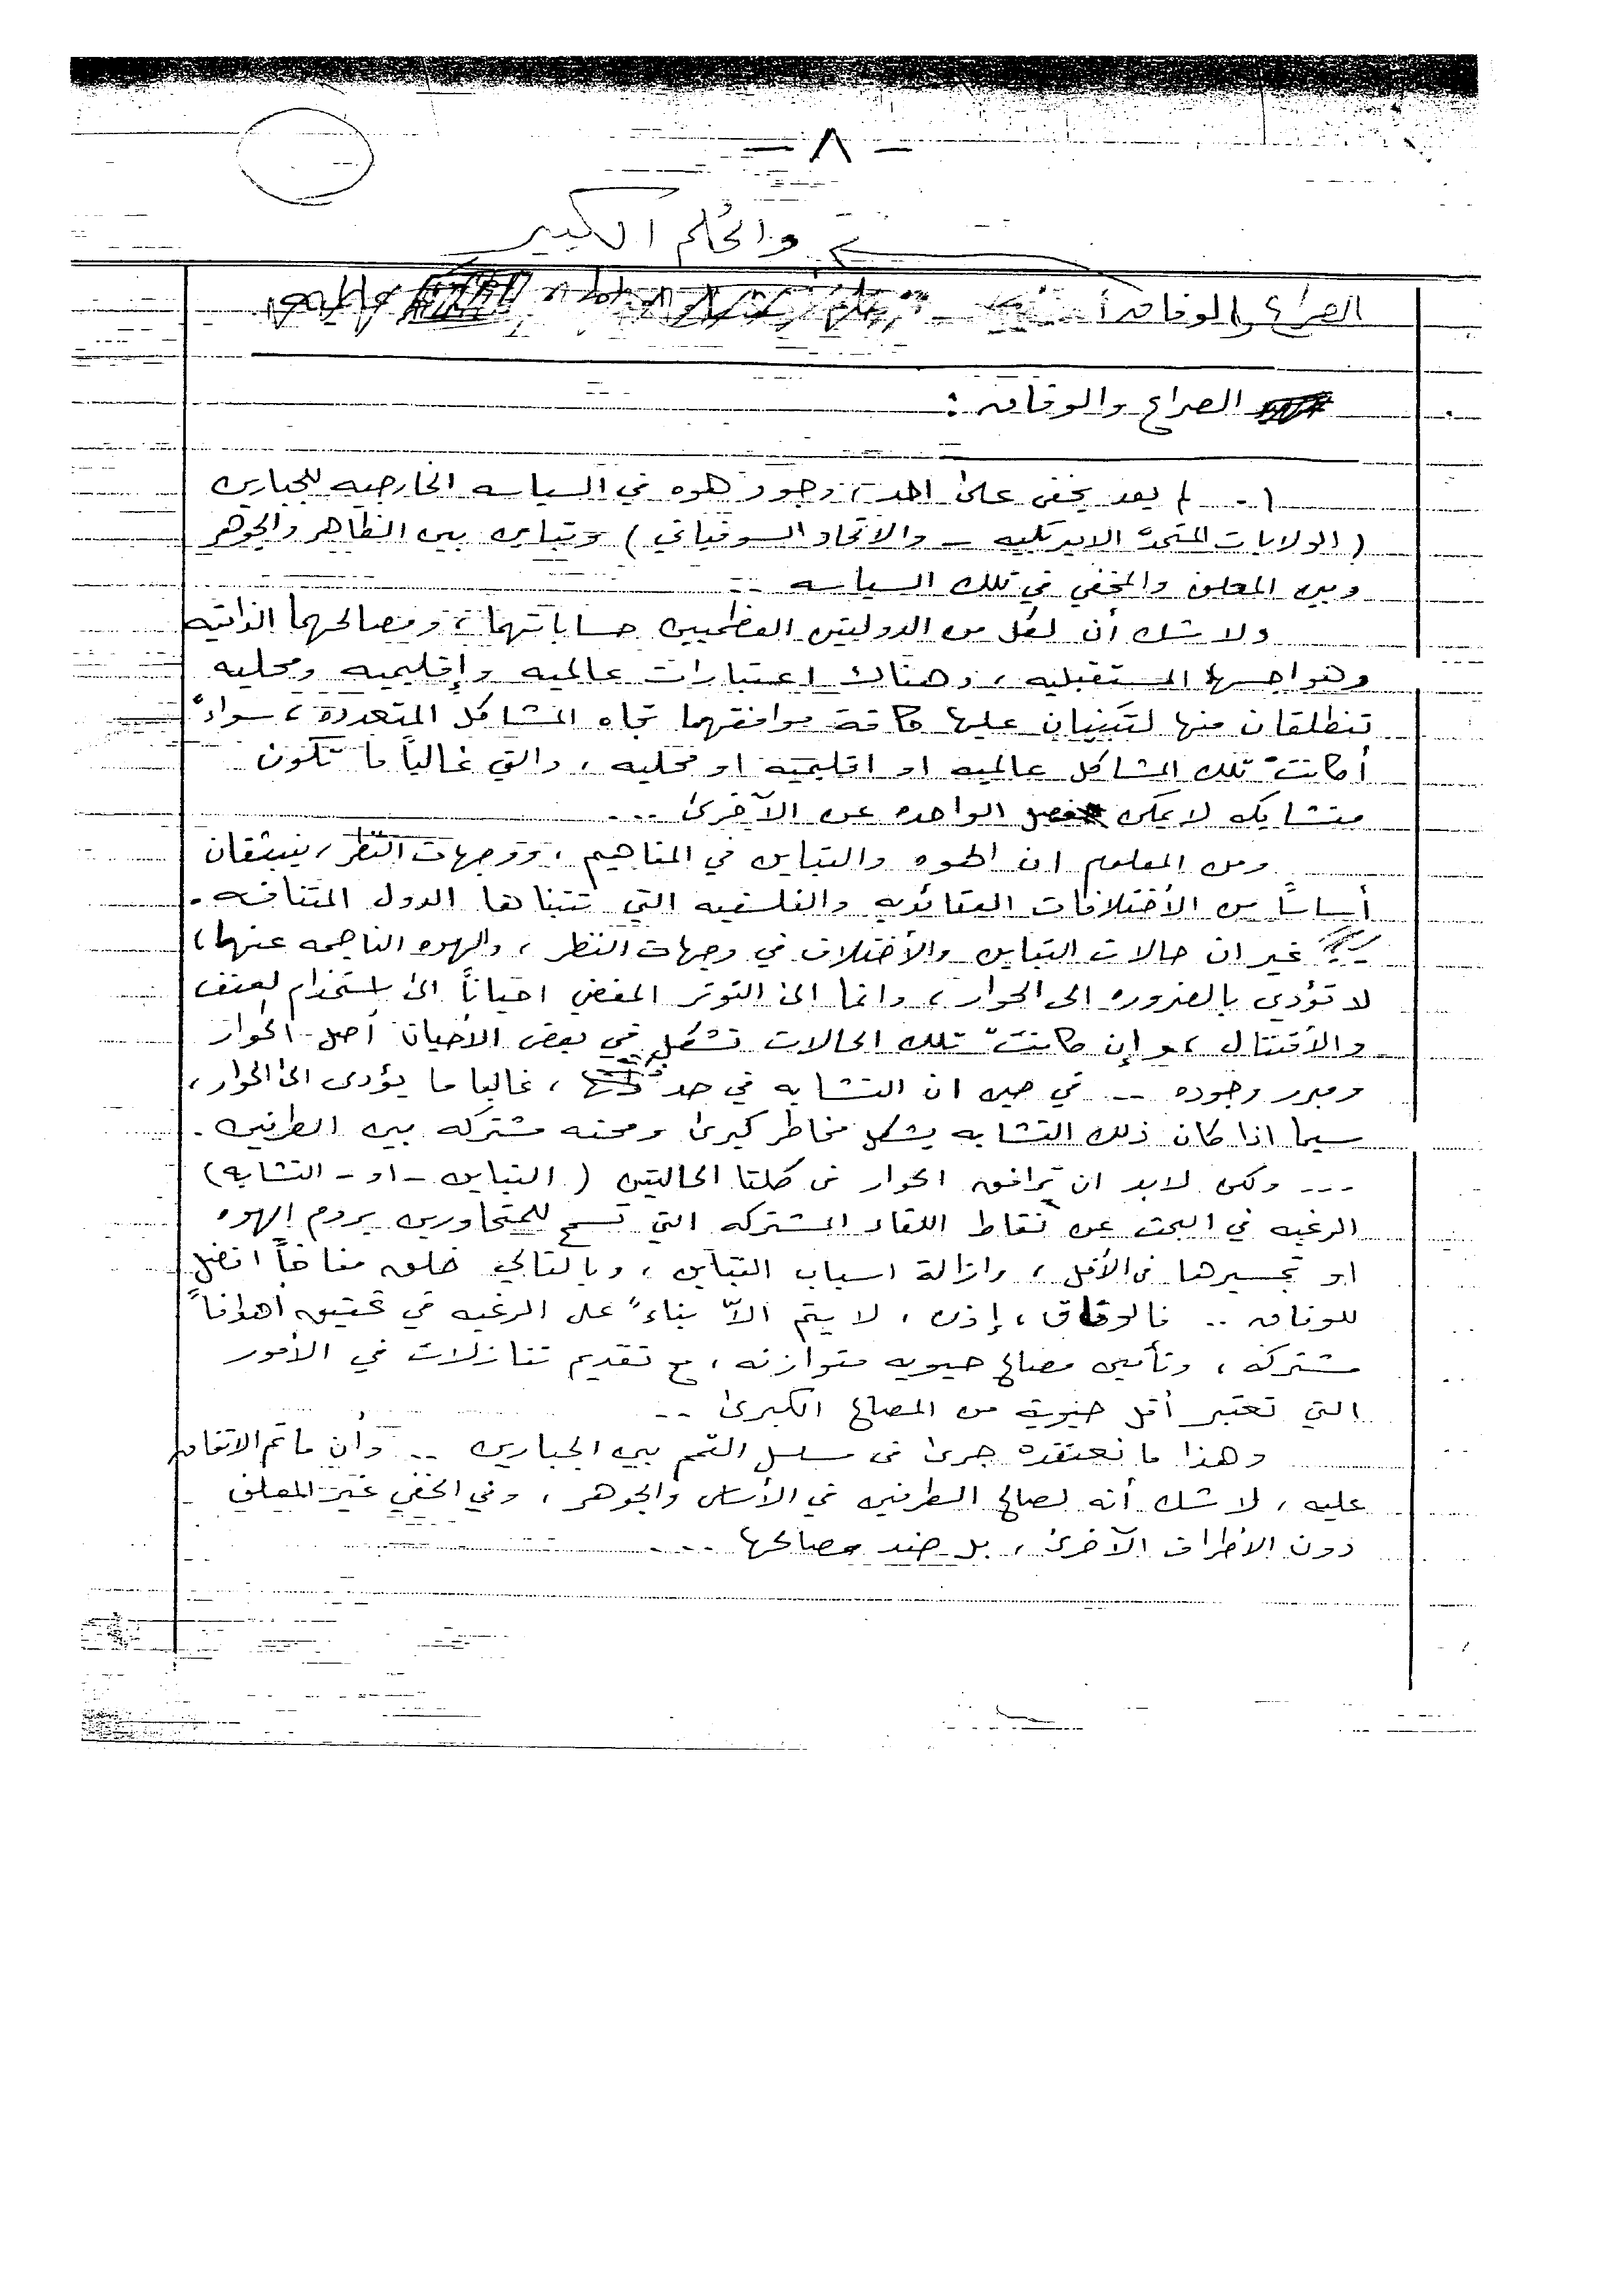 - ٨ -
والحُلم الكبير
الصراع والوفاق
الصراع والوفاق :
١ .. لم يعد يخفى على احد ، وجود هوه في السياسه الخارجيه للجبارين
( الولايات المتحدة الاميركيه - والاتحاد السوفياتي ) وتباين بين الظاهر والجوهر
وبين المعلن والمخفي في تلك السياسه ..
ولا شك أن لكل من الدولتين العظميين حساباتهما ، ومصالحهما الذاتيه
وهواجسها المستقبليه ، وهناك اعتبارات عالميه وإقليميه ومحليه
تنطلقان منها لتبنيان عليها كافة مواقفهما تجاه المشاكل المتعددة ، سواءً
أكانتْ تلك المشاكل عالميه او اقليميه او محليه ، والتي غالباً ما تكون
متشابكه لا يمكن فصل الواحده عن الآخرى ...
ومن المعلوم ان الهوه والتباين في المفاهيم ، ووجهات النظر ، ينبثقان
أساساً من الأختلافات العقائديه والفلسفيه التي تتبناها الدول المتنافسه .
غير ان حالات التباين والأختلاف في وجهات النظر ، والهوه الناجمه عنهما ،
لا تؤدي بالضروره الى الحوار ، وانما الى التوتر المفضي احياناً الى استخدام العنف
والأقتتال ، وإن كانتْ تلك الحالات تشكل في بعض الأحيان أصل الحوار
ومبرر وجوده .. في حين ان التشابه في حد ذاته ، غالبا ما يؤدى الى الحوار ،
سيما اذا كان ذلك التشابه يشكل مخاطر كبرى ومحنه مشتركه بين الطرفين .
... ولكن لابد ان ترافق الحوار فى كلتا الحالتين ( التباين - او - التشابه )
الرغبه في البحث عن نقاط اللقاء المشتركه التي تسمح للمتحاورين بردم الهوه
او تجسيرها فى الأقل ، وازالة اسباب التباين ، وبالتالي خلق مناخاً افضل
للوفاق .. فالوفاق ، إذن ، لا يتم الاّ بناءً على الرغبه في تحقيق أهدافاً
مشتركه ، وتأمين مصالح حيويه متوازنه ، مع تقديم تنازلات في الأمور
التي تعتبر أقل حيوية من المصالح الكبرى ..
وهذا ما نعتقده جرى فى مسلسل القمم بين الجبارين .. وأن ما تم الاتفاق
عليه ، لا شك أنه لصالح الطرفين في الأساس والجوهر ، وفي الخفي غير المعلن
دون الأطراف الآخرى ، بل ضد مصالحها ...